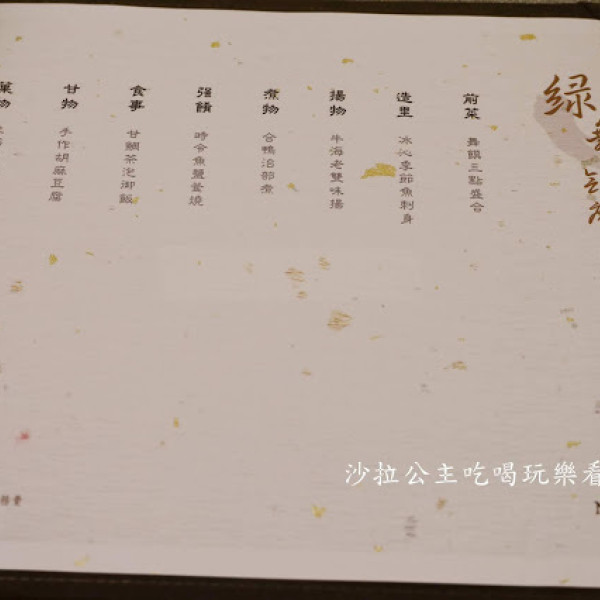 綠舞
前菜
舞饌三點盛合
造里
冰心季節魚刺身
揚物
牛海老雙味揚
煮物
合鴨治部煮
强餚
時令魚鹽釜燒
食事
甘鯛茶泡御飯
甘物
手作胡麻豆腐
菓物
沙拉公主吃喝玩樂看
務費